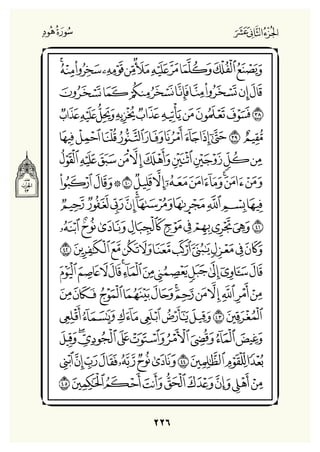 الجُزءُ الثَّانِي عَشَرَ
سُورَةُ هُودٍ
وَيَصۡنَعُ ٱلۡفُلۡكَ وَكُلَّمَا مَرَّ عَلَيۡهِ مَلَأٞ مِّن قَوۡمِهِۦ سَخِرُواْ مِنۡهُۚ
قَالَ إِن تَسۡخَرُواْ مِنَّا فَإِنَّا نَسۡخَرُ مِنكُمۡ كَمَا تَسۡخَرُونَ
٣٨ فَسَوۡفَ تَعۡلَمُونَ مَن يَأۡتِيهِ عَذَابٞ يُخۡزِيهِ وَيَحِلُّ عَلَيۡهِ عَذَابٞ
مُّقِيمٌ ٣٩ حَتَّىٰٓ إِذَا جَآءَ أَمۡرُنَا وَفَارَ ٱلتَّنُّورُ قُلۡنَا ٱحۡمِلۡ فِيهَا
مِن كُلّٖ زَوۡجَيۡنِ ٱثۡنَيۡنِ وَأَهۡلَكَ إِلَّا مَن سَبَقَ عَلَيۡهِ ٱلۡقَوۡلُ
وَمَنۡ ءَامَنَۚ وَمَآ ءَامَنَ مَعَهُۥٓ إِلَّا قَلِيلٞ ٤٠ ۞ وَقَالَ ٱرۡكَبُواْ
فِيهَا بِسۡمِ ٱللَّهِ مَجۡرٜىٰهَا وَمُرۡسَىٰهَآۚ إِنَّ رَبِّي لَغَفُورٞ رَّحِيمٞ
٤١ وَهِيَ تَجۡرِي بِهِمۡ فِي مَوۡجٖ كَٱلۡجِبَالِ وَنَادَىٰ نُوحٌ ٱبۡنَهُۥ
وَكَانَ فِي مَعۡزِلٖ يَٰبُنَيَّ ٱرۡكَب مَّعَنَا وَلَا تَكُن مَّعَ ٱلۡكَٰفِرِينَ ٤٢
قَالَ سَـَٔاوِيٓ إِلَىٰ جَبَلٖ يَعۡصِمُنِي مِنَ ٱلۡمَآءِۚ قَالَ لَا عَاصِمَ ٱلۡيَوۡمَ
مِنۡ أَمۡرِ ٱللَّهِ إِلَّا مَن رَّحِمَۚ وَحَالَ بَيۡنَهُمَا ٱلۡمَوۡجُ فَكَانَ مِنَ
ٱلۡمُغۡرَقِينَ ٤٣ وَقِيلَ يَٰٓأَرۡضُ ٱبۡلَعِي مَآءَكِ وَيَٰسَمَآءُ أَقۡلِعِي
وَغِيضَ ٱلۡمَآءُ وَقُضِيَ ٱلۡأَمۡرُ وَٱسۡتَوَتۡ عَلَى ٱلۡجُودِيِّۖ وَقِيلَ
بُعۡدٗا لِّلۡقَوۡمِ ٱلظَّٰلِمِينَ ٤٤ وَنَادَىٰ نُوحٞ رَّبَّهُۥ فَقَالَ رَبِّ إِنَّ ٱبۡنِي
مِنۡ أَهۡلِي وَإِنَّ وَعۡدَكَ ٱلۡحَقُّ وَأَنتَ أَحۡكَمُ ٱلۡحَٰكِمِينَ ٤٥
٢٢٦